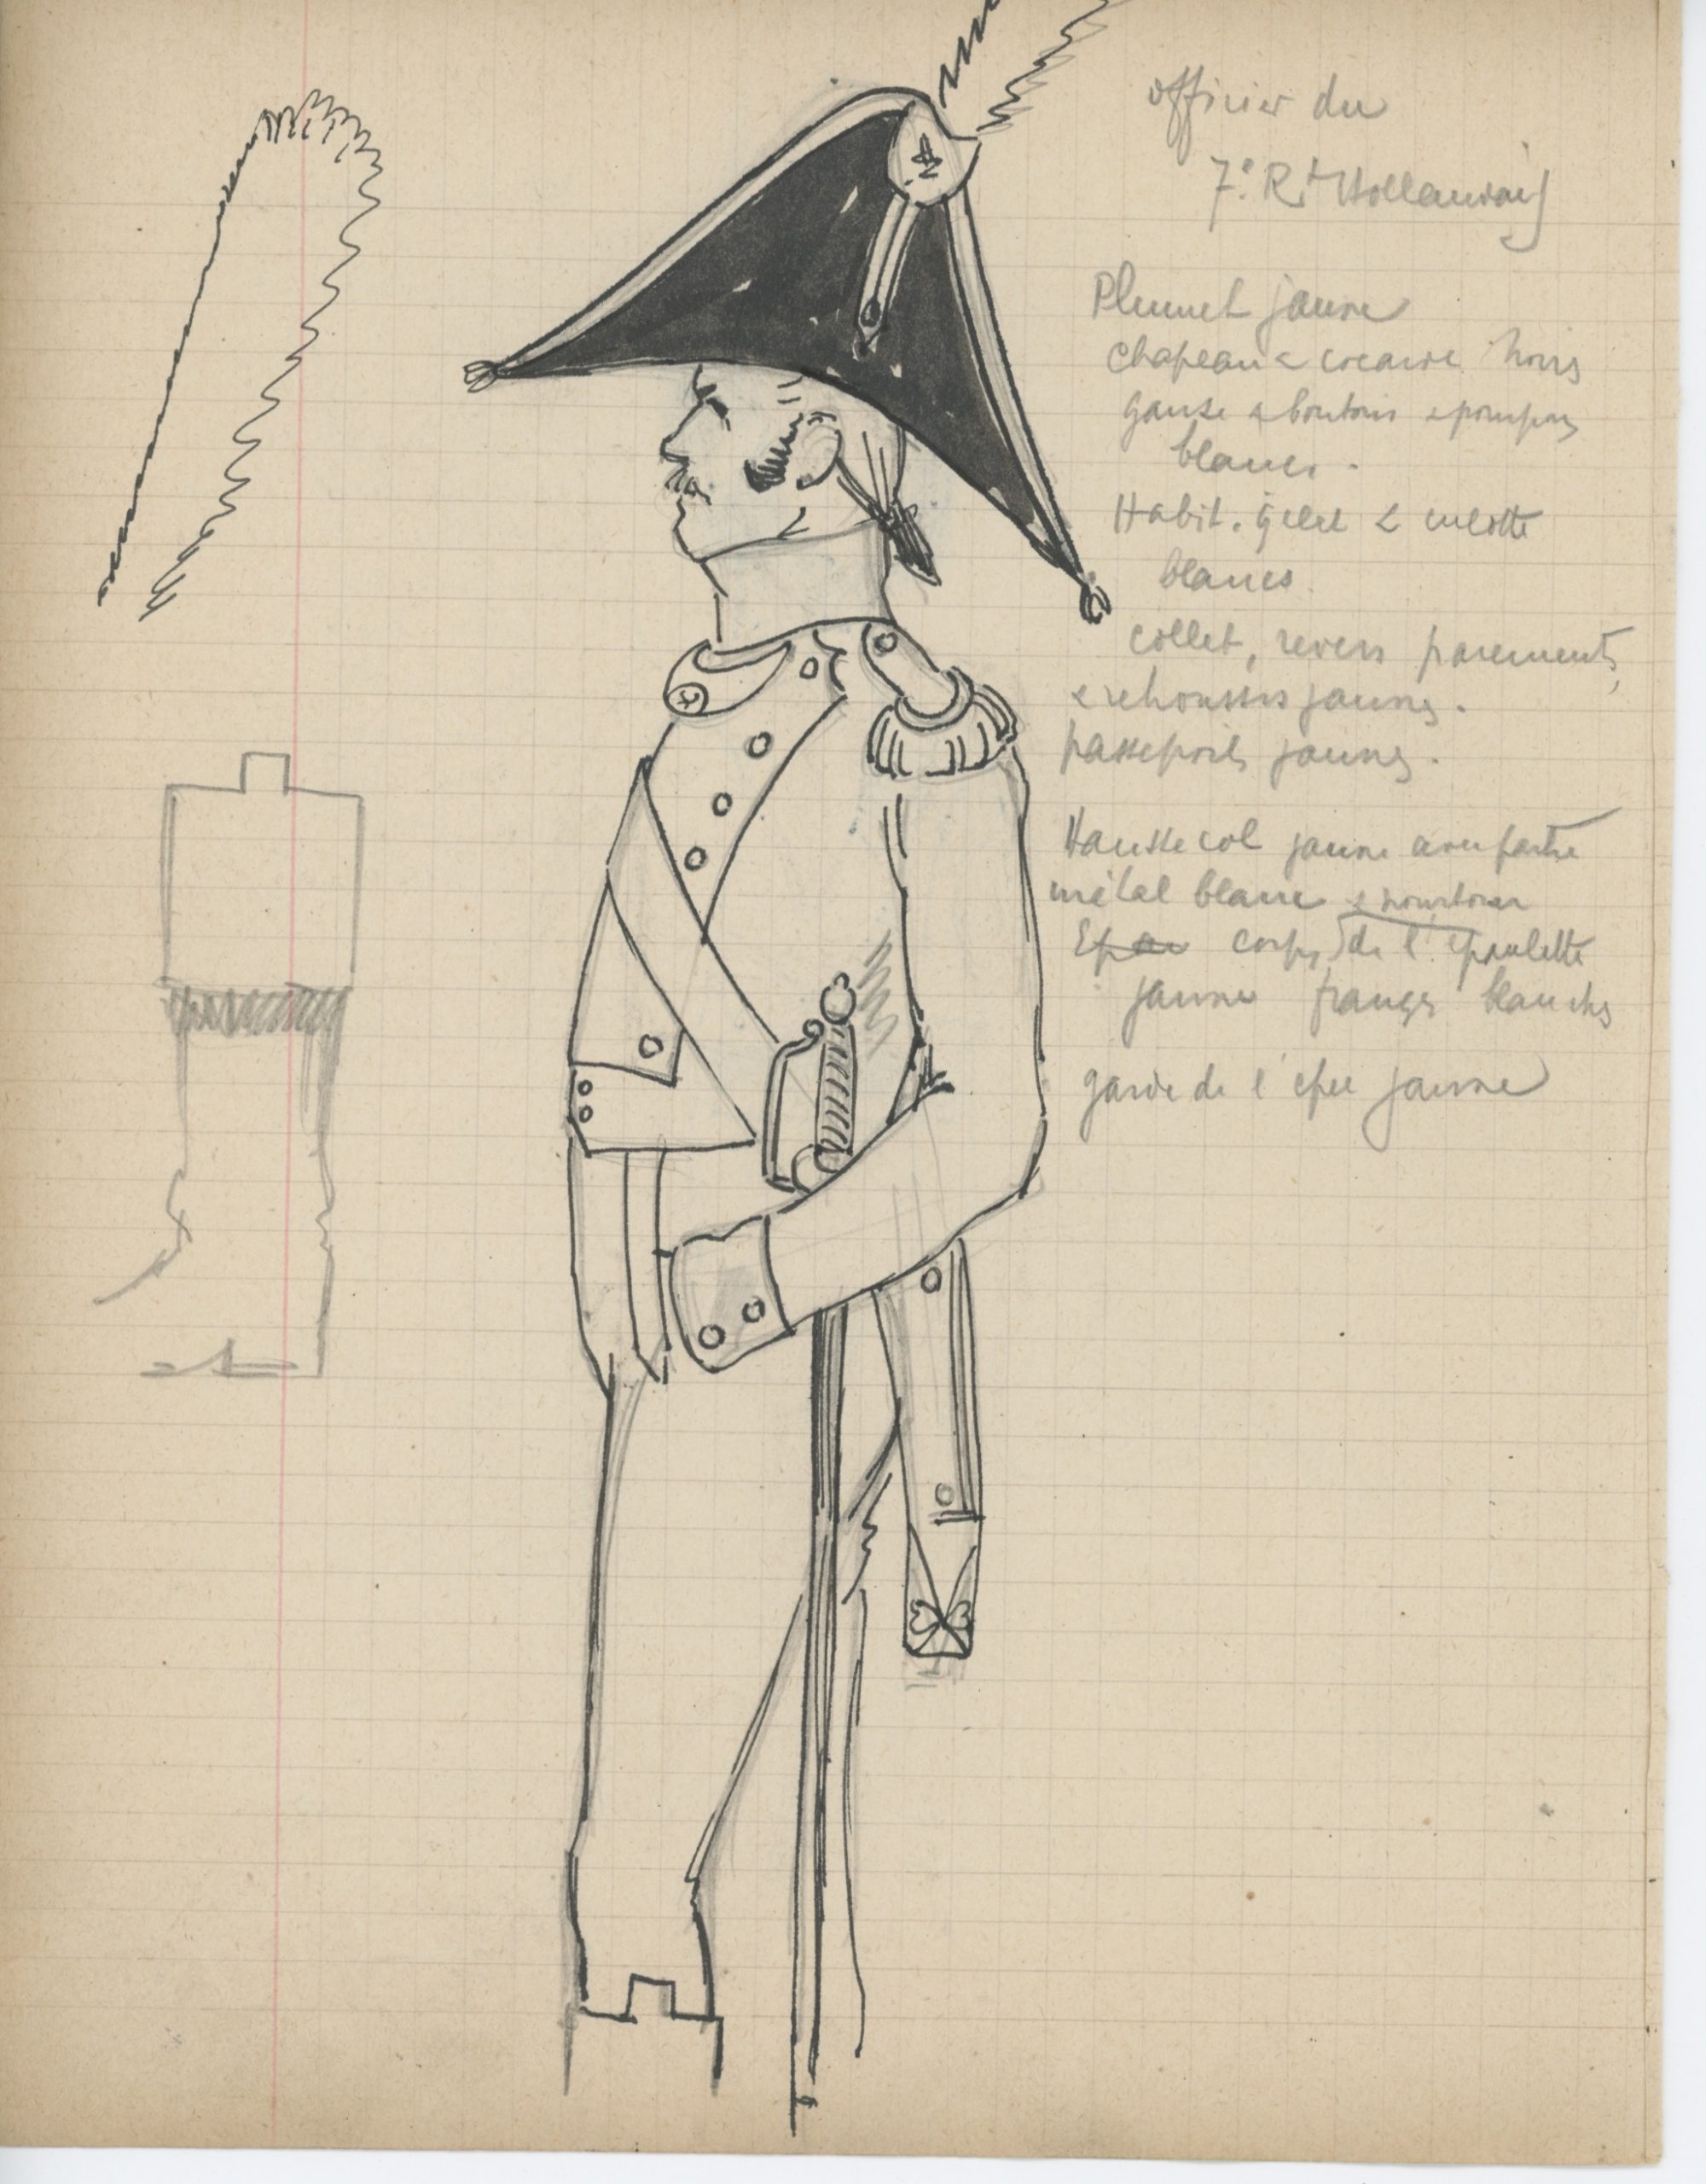 officier du
7e Rt Hollandais
Plumet jaune
chapeau & cocarde noirs
ganse & boutons & pompons
blancs.
Habit, gilet & culotte
blancs
collet, revers parements,
& retroussis jaunes.
passepoils jaunes.
Hausse col jaune
métal blanc &
Epau corps de l'épaulette
jaune franges blanches
garde de l'épée jaune